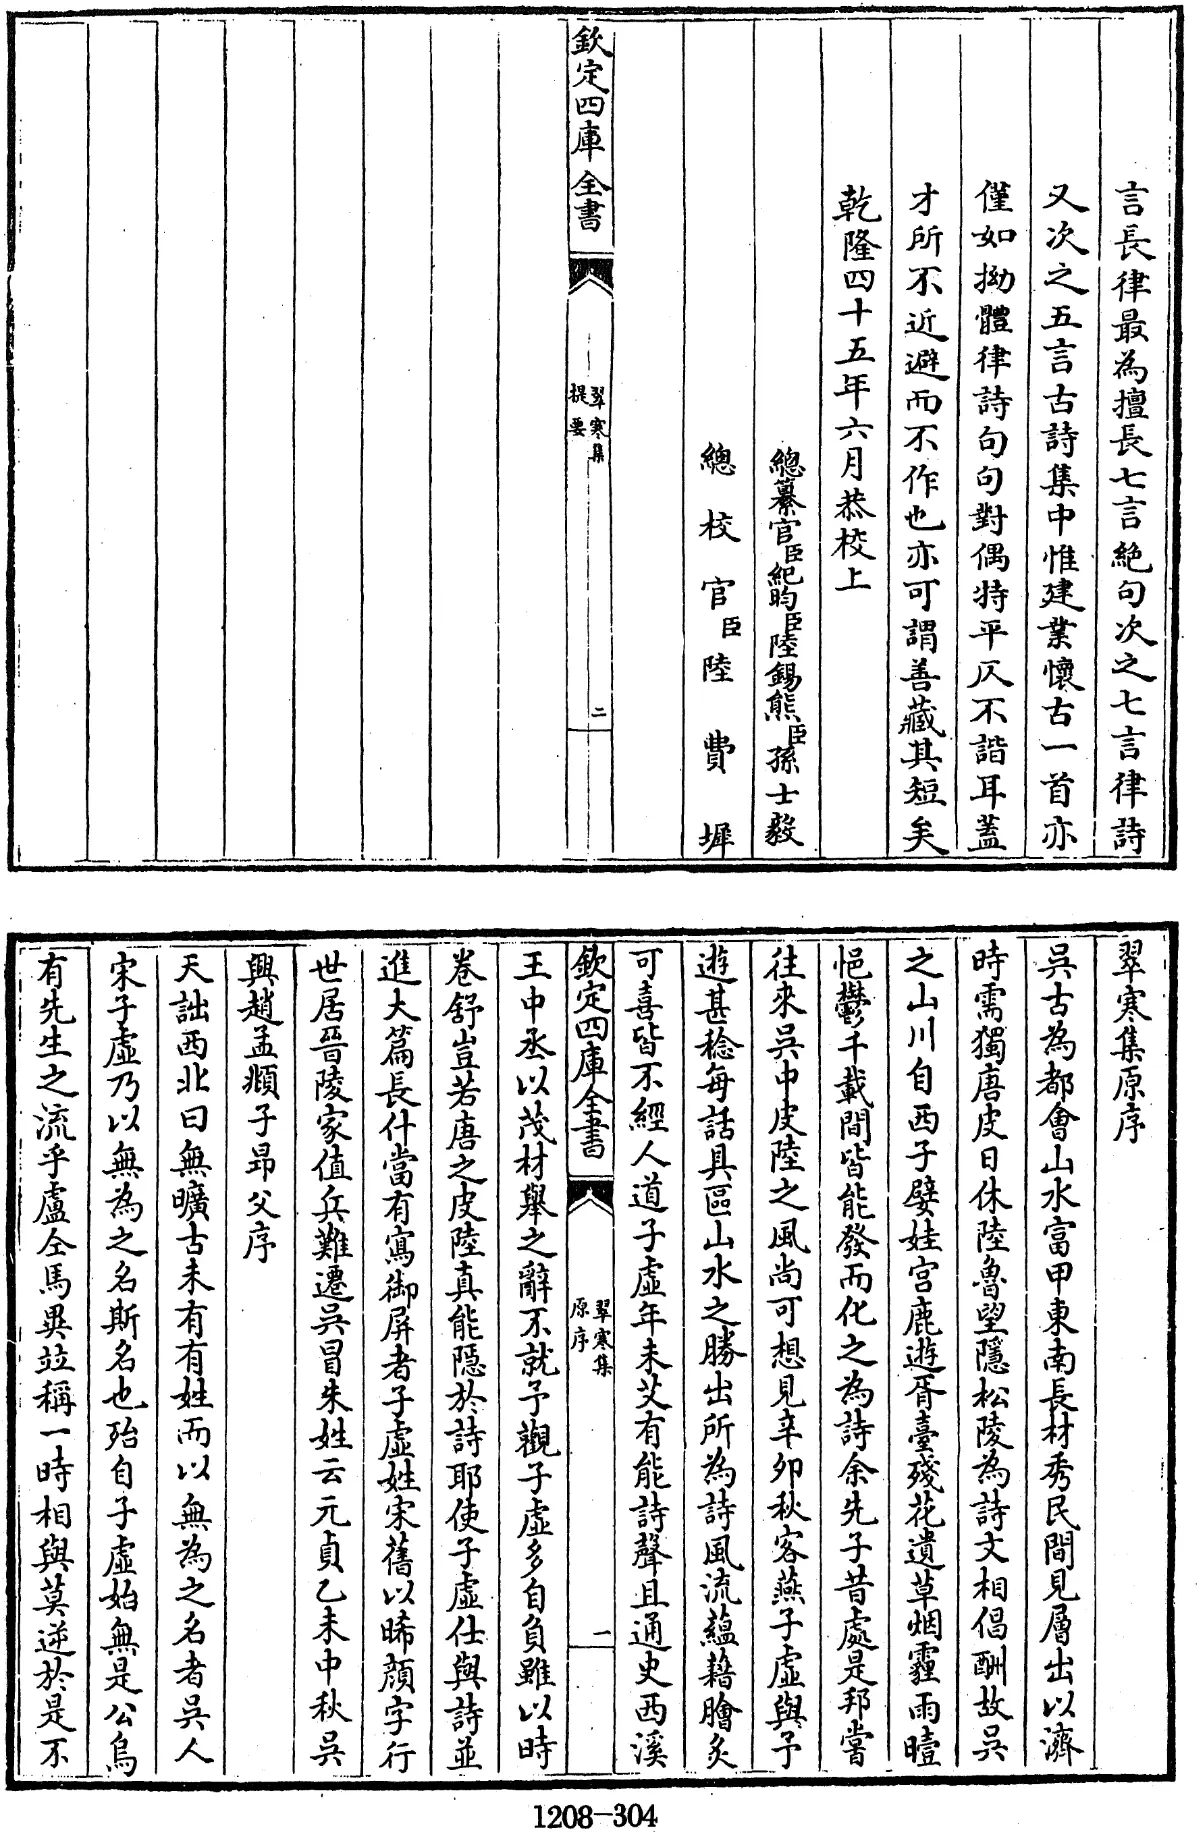 言長律最為擅長七言絶句次之七言律詩
又次之五言古詩集中惟建業懷古一首亦
僅如拗體律詩句句對偶特平仄不諧耳蓋
才所不近避而不作也亦可謂善藏其短矣
乾隆四十五年六月恭校上
總纂官臣紀昀臣陸錫熊臣孫士毅
總校官臣陸費墀
欽定四庫全書
翠寒集
提要
二
翠寒集原序
吳古為都會山水富甲東南長材秀民間見層出以濟
時需獨唐皮日休陸魯望隱松陵為詩文相倡酬故吳
之山川自西子嬖娃宫鹿遊胥臺殘花遺草烟霾雨曀
悒鬱千載間皆能發而化之為詩余先子昔處是邦嘗
往來吳中皮陸之風尚可想見辛夘秋客燕子虛與予
遊甚稔每話具區山水之勝出所為詩風流蘊藉膾炙
可喜皆不經人道子虛年未艾有能詩聲且通史西溪
欽定四庫全書
翠寒集
原序
一
王中丞以茂材舉之辭不就予觀子虛多自負雖以時
卷舒豈若唐之皮陸真能隱於詩耶使子虛仕與詩並
進大篇長什當有寫御屏者子虛姓宋舊以晞顔字行
世居晉陵家值兵難遷吳冒朱姓云元貞乙未中秋吳
興趙孟頫子昂父序
天詘西北曰無曠古未有有姓而以無為之名者吳人
宋子虛乃以無為之名斯名也殆自子虛始無是公烏
有先生之流乎盧仝馬異竝稱一時相與莫逆於是不
1208-304